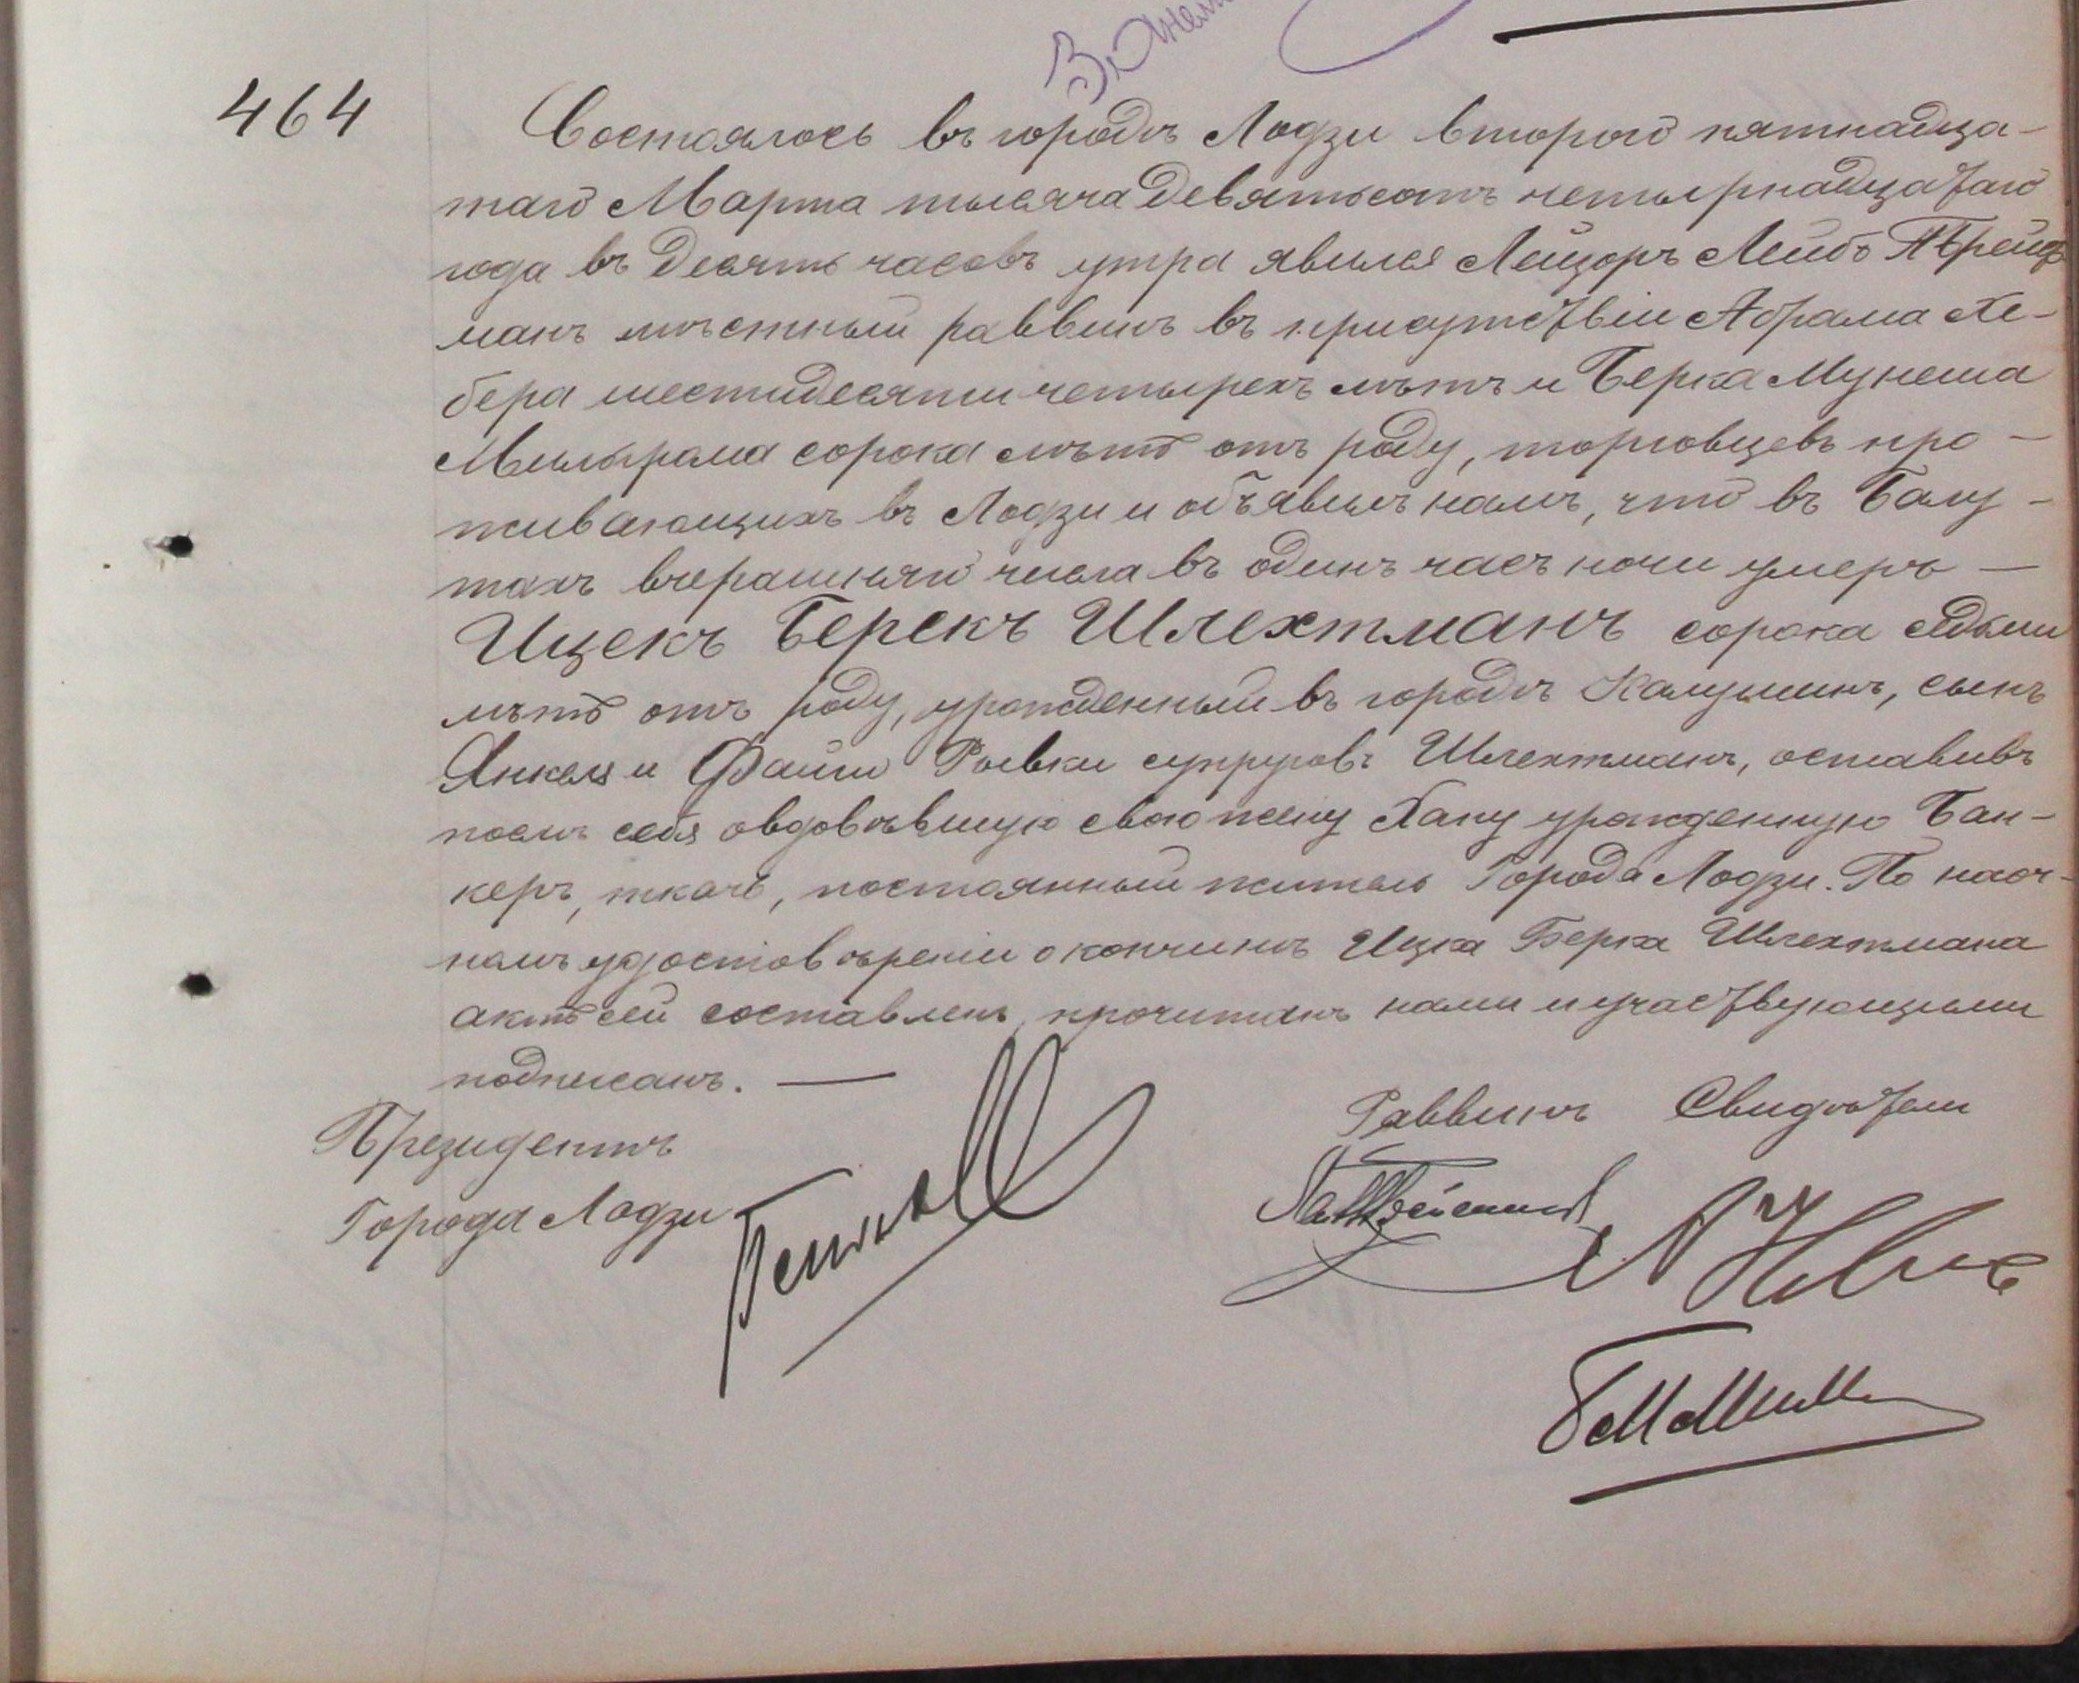 464
Состоялось въ городѣ Лодзи второго пятнадца-
таго Марта тысяча девятьсотъ четырнадцатаго
года въ десять часовъ утра явился Лейзоръ Лейбъ Трейст
манъ мѣстный раввинъ въ присутствіи Абрама Хе-
бера шестидесяти четырехъ лѣтъ и Берка Мунеша
Мильграма сорока лѣтъ отъ роду, торговцевъ про-
живающихъ въ Лодзи и объявилъ намъ, что въ Балу-
тахъ вчерашняго числа въ одинъ часъ ночи умеръ —
Ицекъ Берекъ Шлехтманъ сорока седьми
лѣтъ отъ роду, урожденный въ городѣ Калушинѣ, сынъ
Янкеля и Файги Ривки супруговъ Шлехтманъ, оставивъ
послѣ себя овдовѣвшую свою жену Хану урожденную Бан-
керъ, ткачъ, постоянный житель Города Лодзи. По наоч-
номъ удостовѣреніи о кончинѣ Ицка Берка Шлехтмана
актъ сей составленъ, прочитанъ нами и участвующими
подписанъ. —
Президентъ
Города Лодзи
Раввинъ Свидѣтели